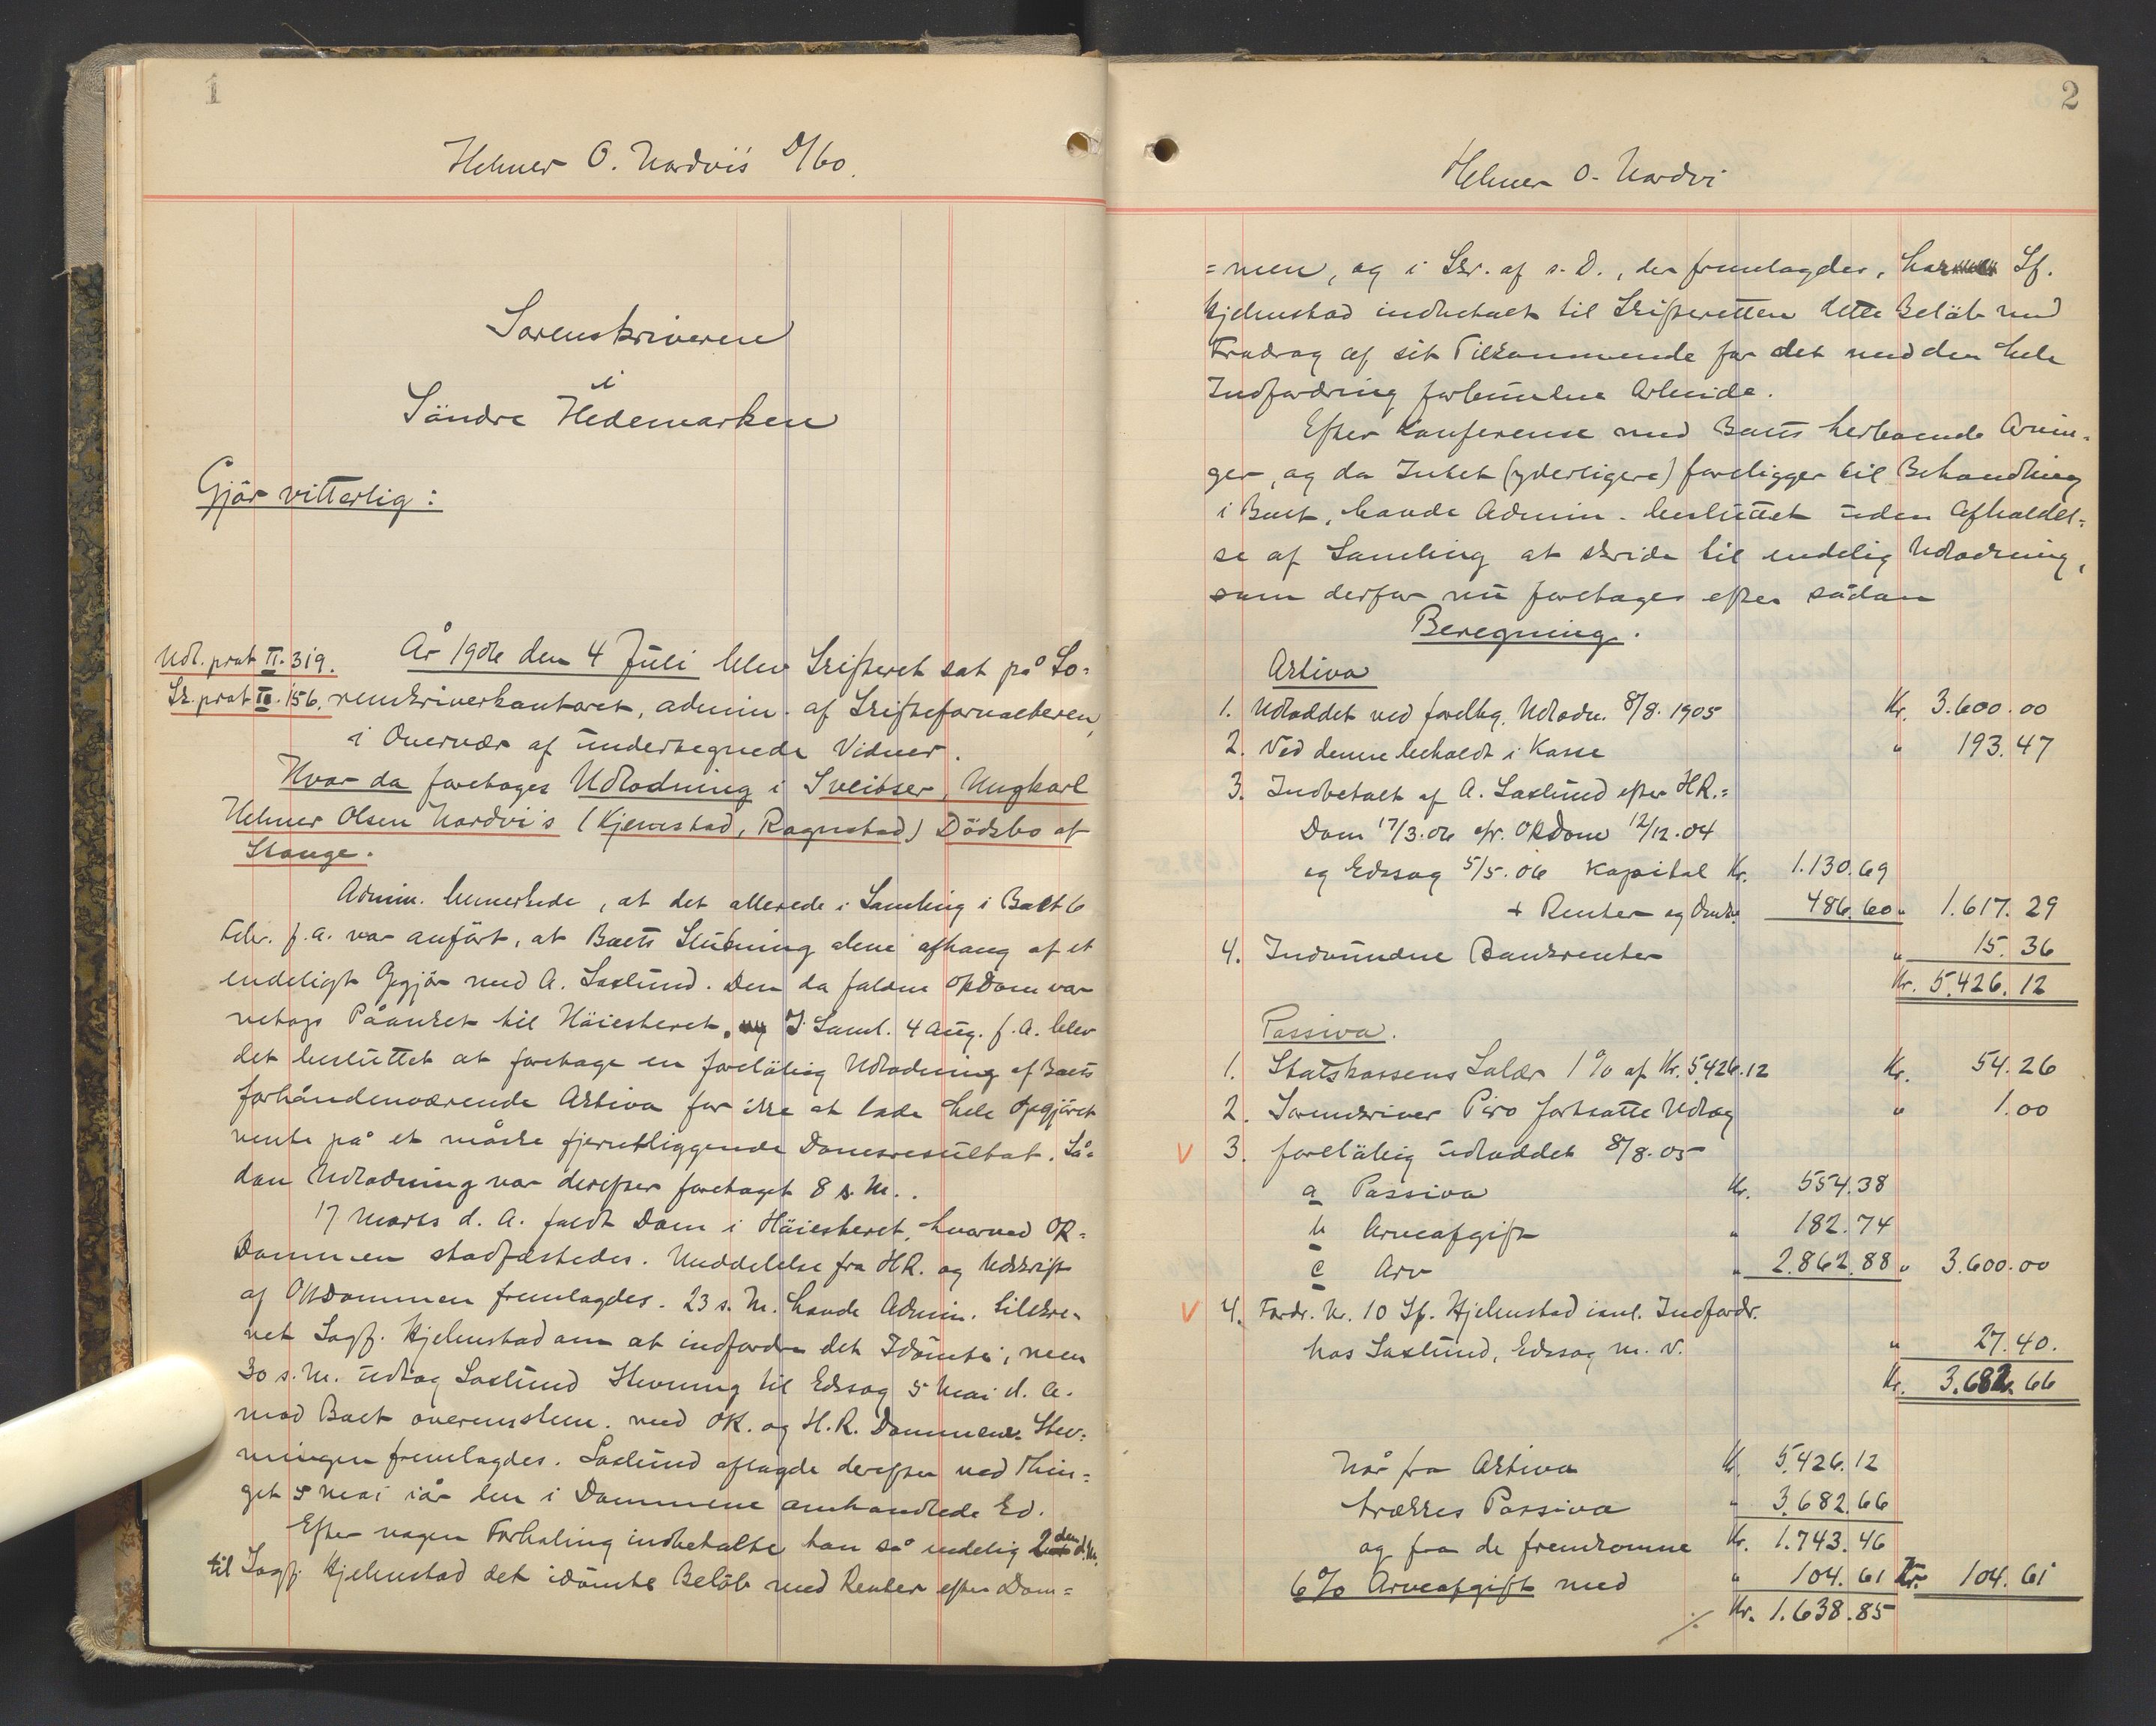 1
Helmer O. Nordvi's D/bo.
Sorenskriveren
i
Söndre Hedemarken
Gjör vitterlig:
Udl. prot II. 319.
Sk. prot III. 156.
År 1906 den 4 Juli blev Skifteret sat på So=
renskriverkontoret, admin. af Skifteforvalteren,
i Overvær af undertegnede Vidner.
Hvor da foretoges Udlodning i Sveitser, Ungkarl
Helmer Olsen Nordvi's (Kjernstad, Rognstad) Dödsbo af
Stange.
Admin. bemerkede, at det allerede i Samling i Boet 6
Febr. f. A. var anfört, at Boets Slutning alene afhang af et
endeligt Opgjör med A. Saxlund. Den da faldne OKDom var
netop Påanket til Höiesteret. I Saml. 4 Aug. f. A. blev
det besluttet at foretage en forelöbig Udlodning af Boets
forhåndenværende Aktiva for ikke at lade hele Opgjöret
vente på et måske fjerntliggende Domsresultat. Så=
dan Udlodning var derefter foretaget 8 s. M..
17 Marts d. A. faldt Dom i Höiesteret, hvorved OK=
Dommen stadfæstedes. Meddelelse fra HR. og Udskrift
af OKDommen fremlagdes. 23 s. M. havde Admin. tilskre=
vet Sagf. Hjelmstad om at indfordre det Idömte, men
30 s. M. udtog Saxlund Stevning til Edssag 5 Mai d. A.
mod Boet overensstem. med OK. og H.R. Dommene. Stev=
ningen fremlagdes. Saxlund aflagde derefter ved Thin=
get 5 Mai iår den i Dommene omhandlede Ed.
Efter nogen Forhaling indbetalte han så endelig 2den d. M.
til Sagf. Hjelmstad det idömte Belöb med Renter efter Dom=
2
Helmer O. Nordvi
=men, og i Skr. af s. D., der fremlagdes, har Sf.
Hjelmstad indbetalt til Skifteretten dette Belöb med
Fradrag af sit Tilkommende for det med den hele
Indfordring forbundne Arbeide.
Efter Konferense med Boets herboende Arvin=
ger, og da Intet (yderligere) foreligger til Behandling
i Boet, havde Admin. besluttet uden Afholdel=
se af Samling at skride til endelig Udlodning,
som derfor nu foretages efter sådan
Beregning.
Aktiva
1. Udloddet ved forelbg. Udlodn. 8/8. 1905 Kr. 3.600.00
2. Ved denne beholdt i Kasse " 193.47
3. Indbetalt af A. Saxlund efter HR.=
Dom 17/3.06 cfr. OKDom 12/12.04
og Edssag 5/5.06 Kapital Kr. 1.130.69
+ Renter og Omk. 486.60 " 1.617.29
4. Indvundne Bankrenter " 15.36
Kr. 5.426.12
Passiva.
1. Statskassens Salær 1% af Kr. 5.426.12 Kr. 54.26
2. Sorenskriver Piro fortsatte Udlæg " 1.00
V 3. forelöbig udloddet 8/8.05
a Passiva Kr. 554.38
b Arveafgift " 182.74
c Arv " 2.862.88 " 3.600.00
V 4. Fordr. Nr. 10 Sf. Hjelmstad isml. Indfordr.
hos Saxlund, Edssag m. v. " 27.40.
Kr. 3.682.66
Når fra Aktiva Kr. 5.426.12
trækkes Passiva " 3.682.66
og fra de fremkomne Kr. 1.743.46
6% Arveafgift med " 104.61 Kr. 104.61
./. Kr. 1.638.85